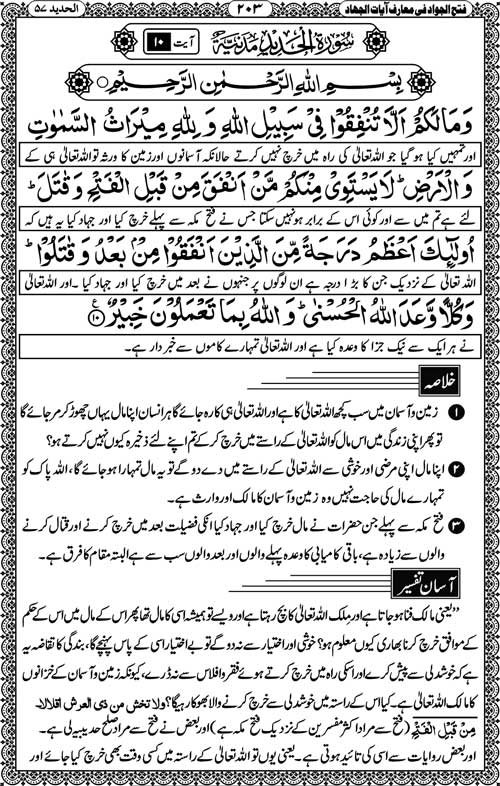 فتح الجواد فی معارف آیات الجہاد
۲۰۳
الحدید ۵۷
سُوْرَةُ الْحَدِیْدِ مَدَنِیَّةٌ
آیت ۱۰
بِسْمِ اللهِ الرَّحْمٰنِ الرَّحِیْمِ
وَمَا لَكُمْ اَلَّا تُنْفِقُوْا فِیْ سَبِیْلِ اللهِ وَلِلّٰهِ مِیْرَاثُ السَّمٰوٰتِ
اور تمہیں کیا ہو گیا جو اللہ تعالیٰ کی راہ میں خرچ نہیں کرتے حالانکہ آسمانوں اور زمین کا ورثہ تو اللہ تعالیٰ ہی کے
وَالْاَرْضِ ؕ لَا یَسْتَوِیْ مِنْكُمْ مَّنْ اَنْفَقَ مِنْ قَبْلِ الْفَتْحِ وَقٰتَلَ ؕ
لئے ہے تم میں سے اور کوئی اس کے برابر ہو نہیں سکتا جس نے فتح مکہ سے پہلے خرچ کیا اور جہاد کیا یہ ہیں کہ
اُولٰٓئِكَ اَعْظَمُ دَرَجَةً مِّنَ الَّذِیْنَ اَنْفَقُوْا مِنْۢ بَعْدُ وَقٰتَلُوْا ؕ
اللہ تعالیٰ کے نزدیک جن کا بڑا درجہ ہے ان لوگوں پر جنہوں نے بعد میں خرچ کیا اور جہاد کیا ۔ اور اللہ تعالیٰ
وَكُلًّا وَّعَدَ اللهُ الْحُسْنٰی ؕ وَاللهُ بِمَا تَعْمَلُوْنَ خَبِیْرٌ ﴿۱۰﴾
نے ہر ایک سے نیک جزا کا وعدہ کیا ہے اور اللہ تعالیٰ تمہارے کاموں سے خبردار ہے۔
خلاصہ
۱ زمین و آسمان میں سب کچھ اللہ تعالیٰ کا ہے اور اللہ تعالیٰ ہی کا رہ جائے گا ہر انسان اپنا مال یہاں چھوڑ کر مر جائے گا
تو پھر اپنی زندگی میں اس مال کو اللہ تعالیٰ کے راستے میں خرچ کر کے تم اپنے لئے ذخیرہ کیوں نہیں کرتے ہو؟
۲ اپنا مال اپنی مرضی اور خوشی سے اللہ تعالیٰ کے راستے میں دے دو گے تو یہ مال تمہارا ہو جائے گا، اللہ پاک کو
تمہارے مال کی حاجت نہیں وہ زمین و آسمان کا مالک اور وارث ہے۔
۳ فتح مکہ سے پہلے جن حضرات نے مال خرچ کیا اور جہاد کیا انکی فضیلت بعد میں خرچ کرنے اور قتال کرنے
والوں سے زیادہ ہے، باقی کامیابی کا وعدہ پہلے والوں اور بعد والوں سب سے ہے البتہ مقام کا فرق ہے۔
آسان تفسیر
”یعنی مالک فنا ہو جاتا ہے اور ملک اللہ تعالیٰ کا بچ رہتا ہے اور ویسے تو ہمیشہ اسی کا مال تھا پھر اس کے مال میں اس کے حکم
کے موافق خرچ کرنا بھاری کیوں معلوم ہو؟ خوشی اور اختیار سے نہ دو گے تو بے اختیار اسی کے پاس پہنچے گا، بندگی کا تقاضہ یہ
ہے کہ خوشدلی سے پیش کرے اور اسکی راہ میں خرچ کرتے ہوئے فقر و افلاس سے نہ ڈرے، کیونکہ زمین و آسمان کے خزانوں
کا مالک اللہ تعالیٰ ہے۔ کیا اس کے راستہ میں خوشدلی سے خرچ کرنے والا بھوکا رہیگا؟ ولا تخش من ذی العرش اقلالا۔
مِنْ قَبْلِ الْفَتْحِ (فتح سے مراد اکثر مفسرین کے نزدیک فتح مکہ ہے) اور بعض نے فتح سے مراد صلح حدیبیہ لی ہے۔
اور بعض روایات سے اسی کی تائید ہوتی ہے۔ یعنی یوں تو اللہ تعالیٰ کے راستہ میں کسی وقت بھی خرچ کیا جائے اور